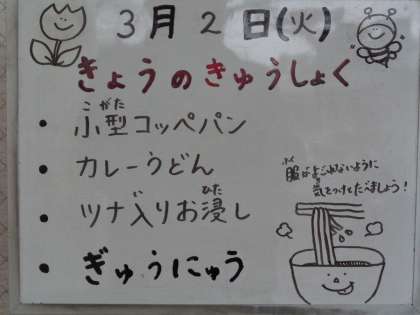 3月2日(火)
きょうのきゅうしょく
こがた
• 小型コッペパン
• カレーうどん
ひた
• ツナ入りお浸し
• ぎゅうにゅう
ふく
服がよごれないように
き
気をつけてたべましょう!